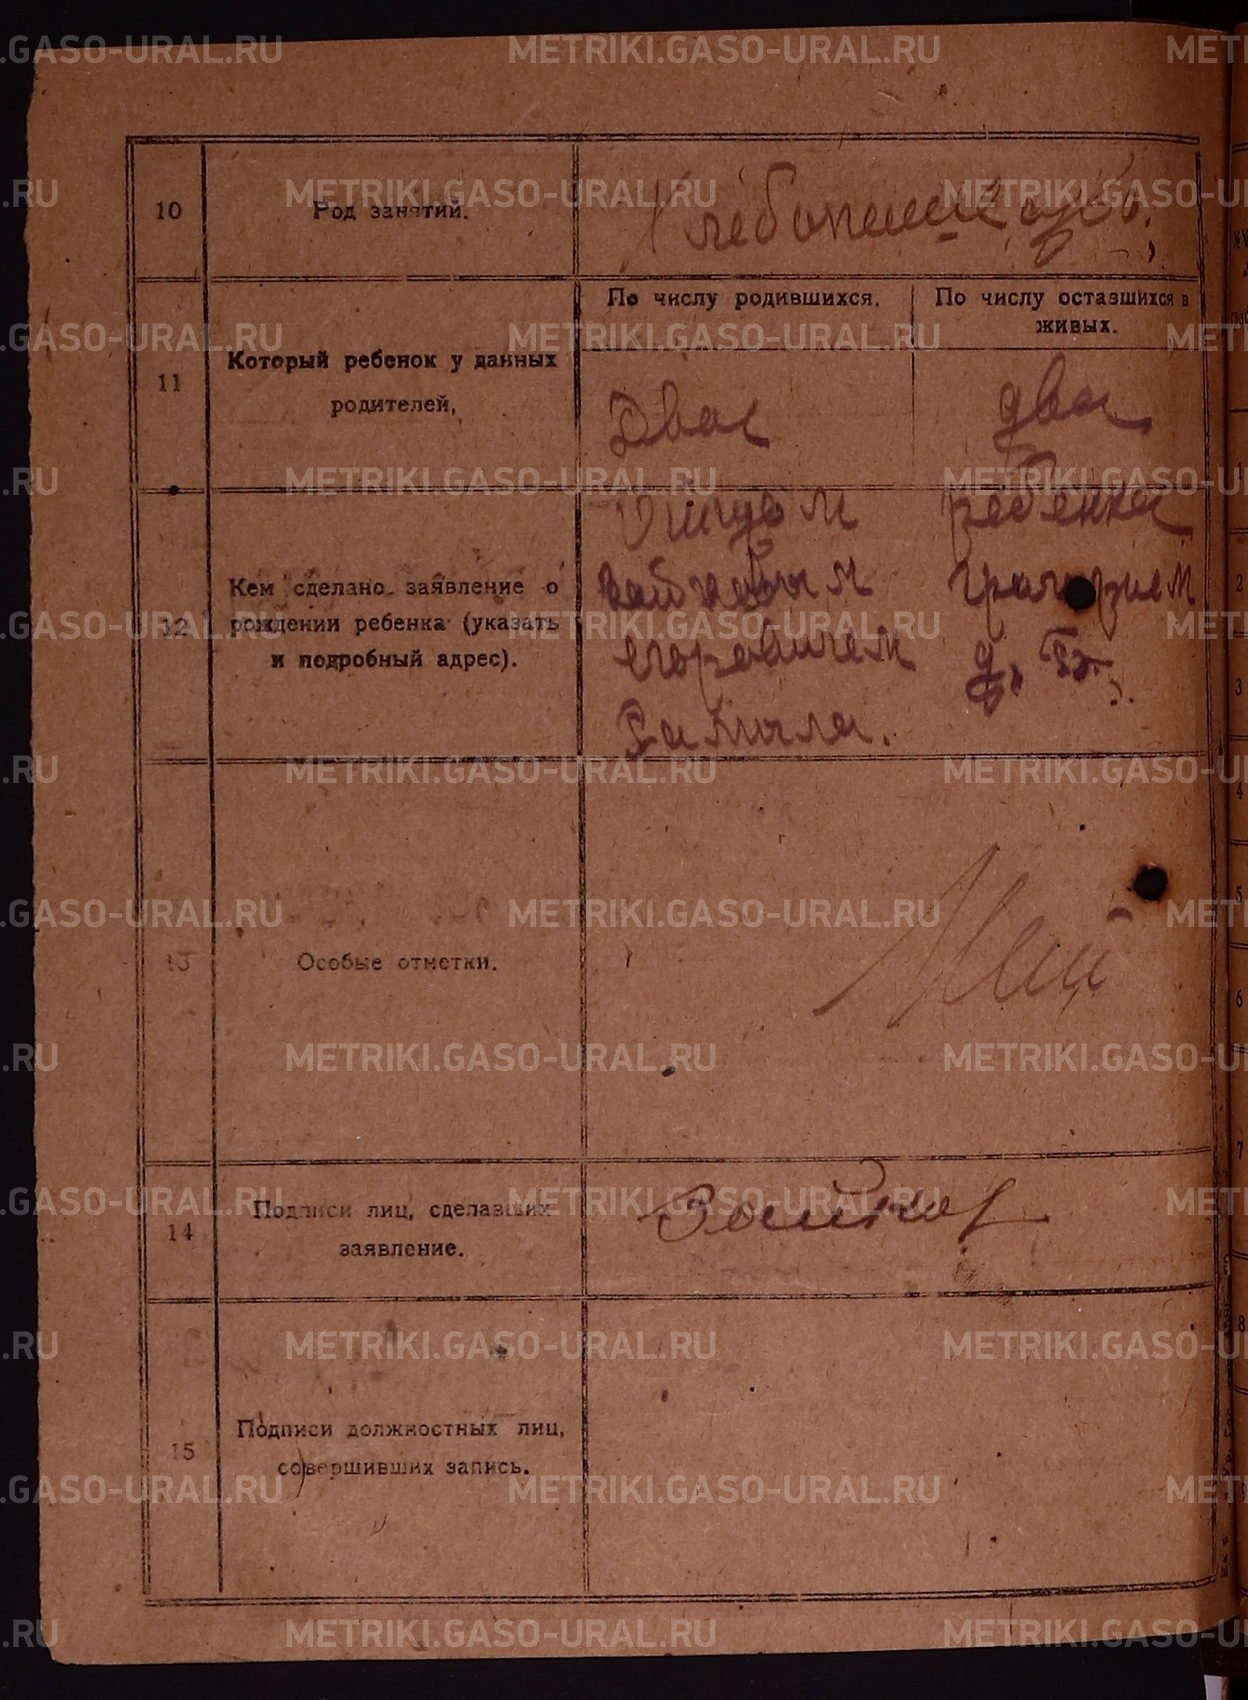 10
Род занятий.
Хлебопашество.
11
Который ребенок у данных
родителей,
По числу родившихся.
По числу оставшихся в
живых.
Два
два
12
Кем сделано заявление о
рождении ребенка (указать
и подробный адрес).
Отцом ребенка
Зайковым Григорием
Егоровичем д. Б.
Рамыла.
13
Особые отметки.
14
Подписи лиц, сделавших
заявление.
Зайков
15
Подписи должностных лиц,
совершивших запись.
METRIKI.GASO-URAL.RU